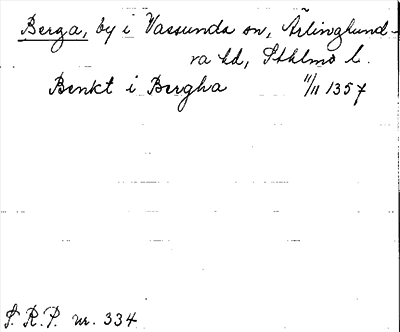 Berga, by i Vassunda sn, Ärlinghund-
ra hd, Sthlms l.
Benkt i Bergha 11/11 1357
S. R. P. nr. 334